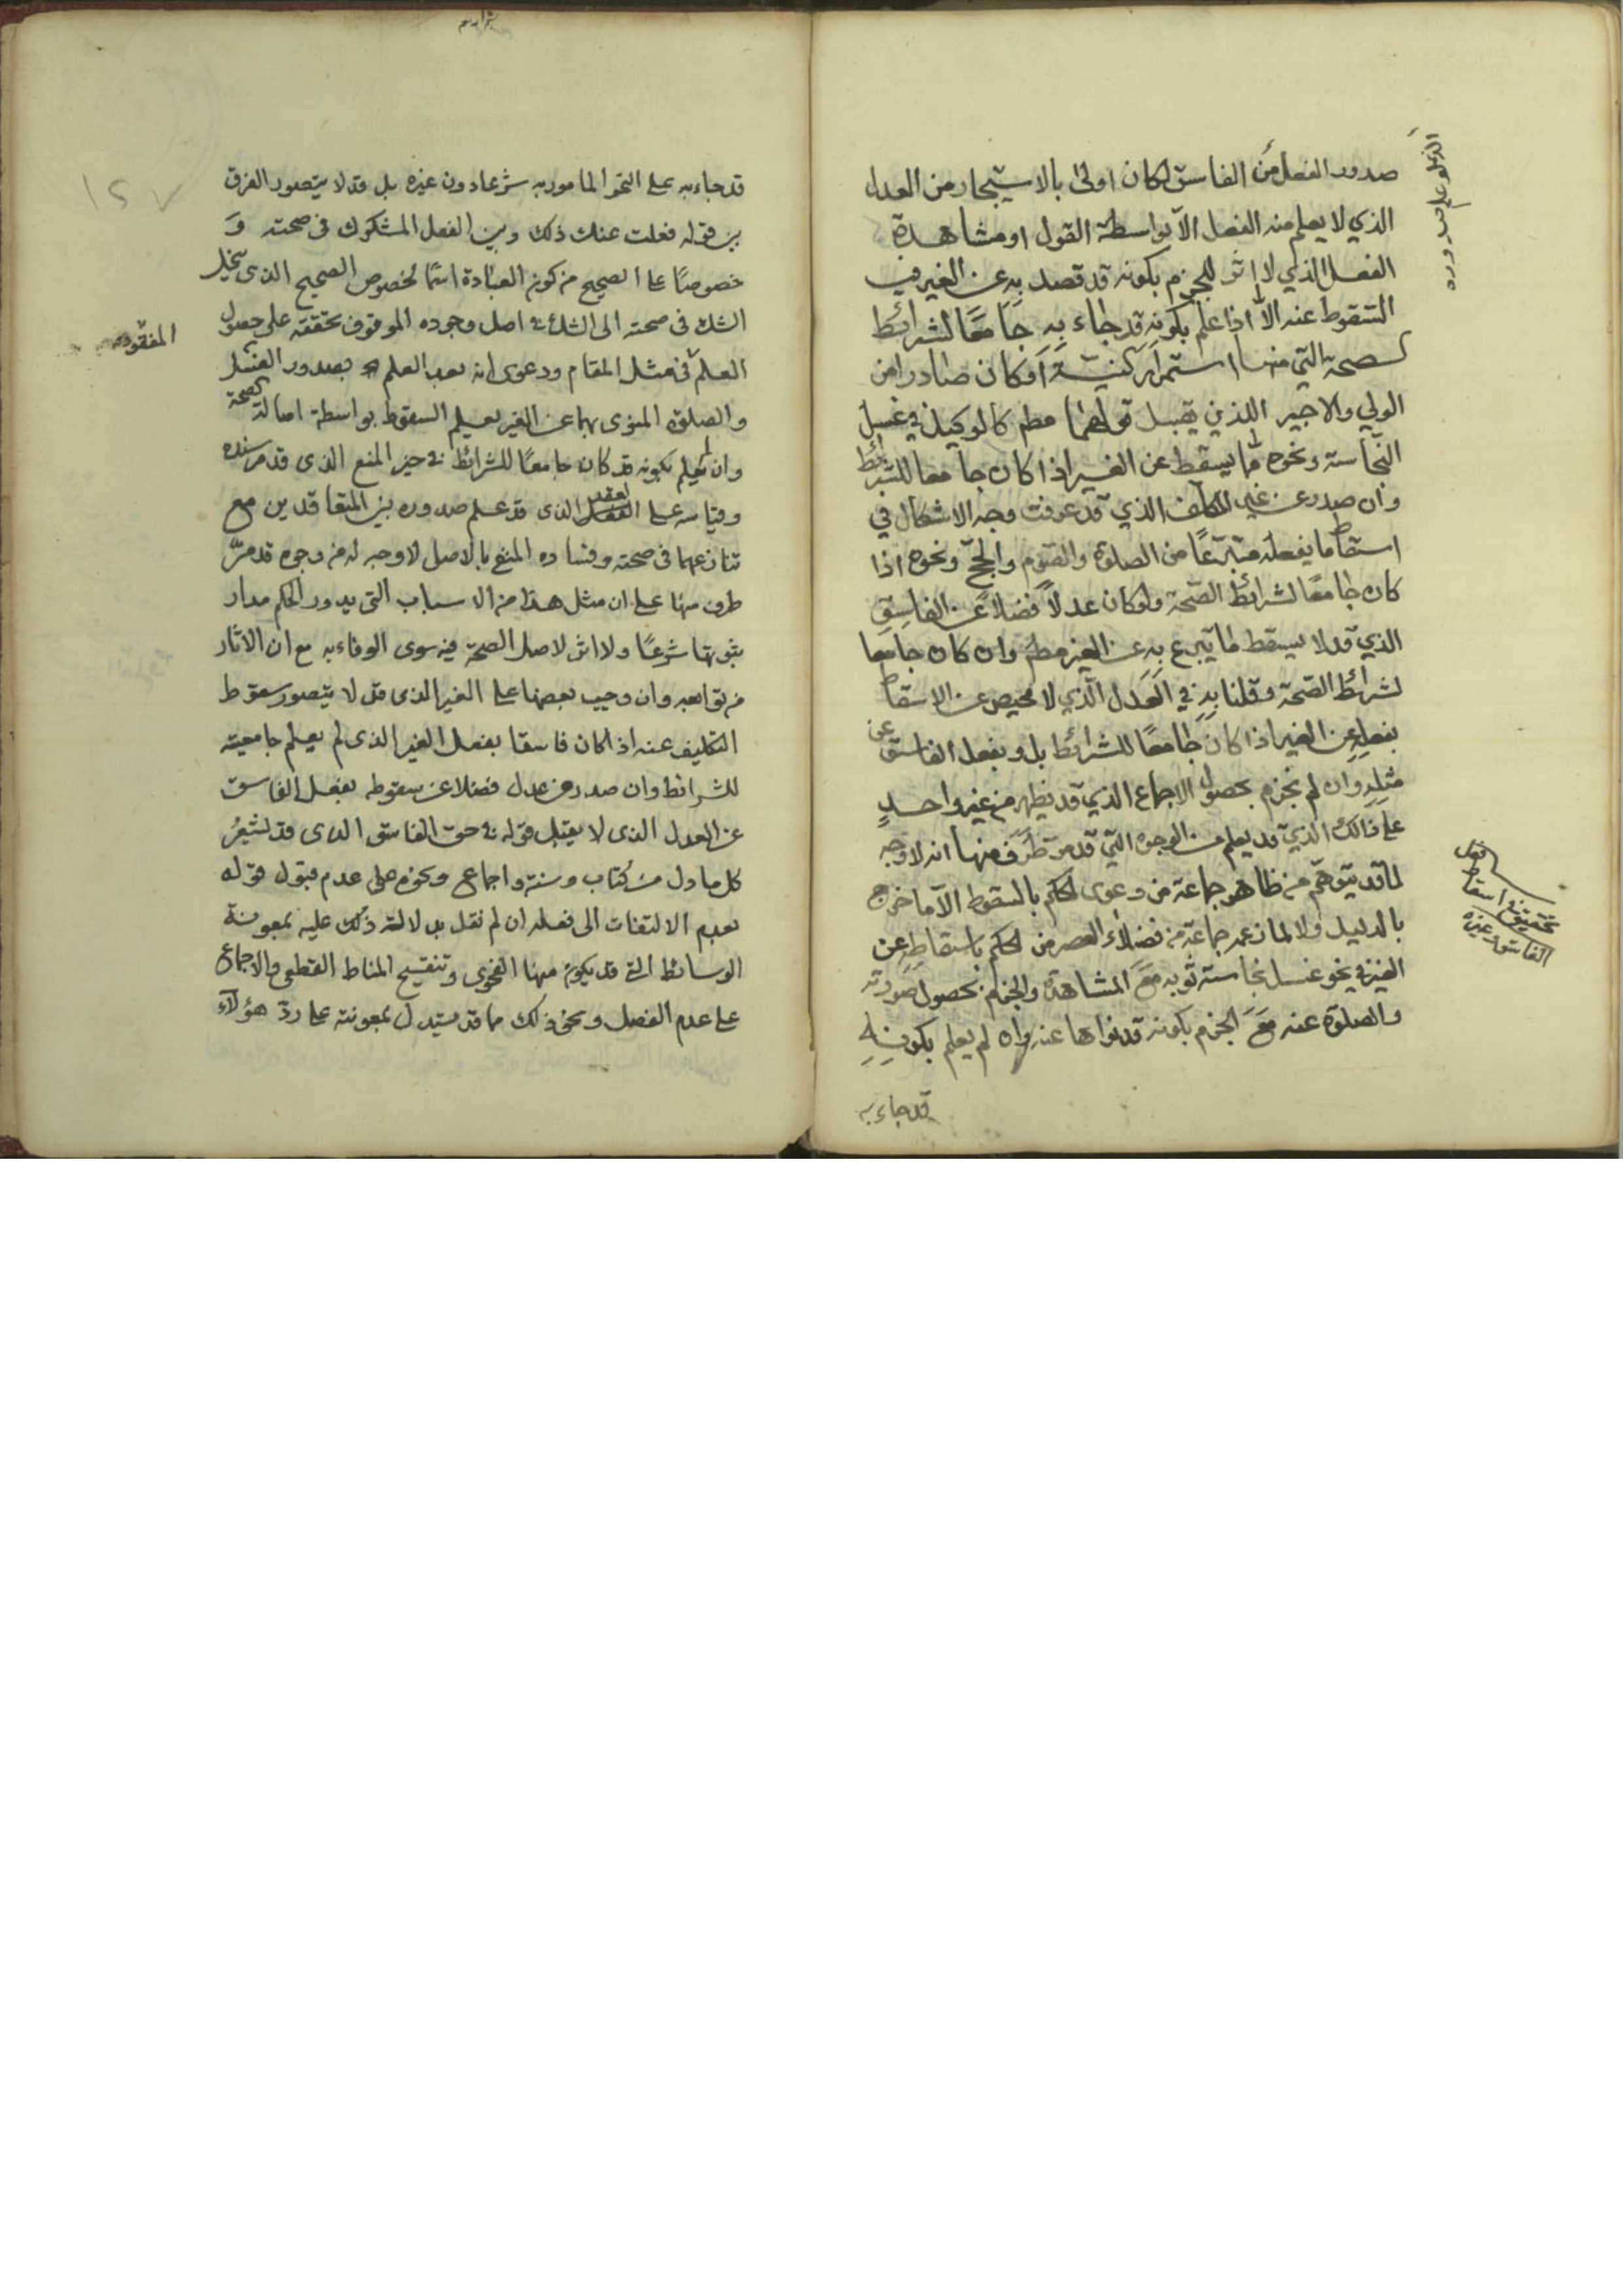 صدور الفعل من الفاسق لكان اولى بالاستيجار من العدل
الذي لا يعلم منه الفعل الا بواسطة القول او مشاهدة
الفعل الذي لا اثر للجزم بكونه قد قصد به عن الغير في
السقوط عنه الا اذا علم بكونه قد جاء به جامعا لشرائط
الصحة التي منها استمرار النية او كان صادرا من
الولي والاجير اللذين يقبل قولهما مطم كالوكيل في غسل
النجاسة ونحوه مما يسقط عن الغير اذا كان جامعا للشرائط
وان صدر عن غير المكلف الذي قد عرفت وجه الاشكال في
اسقاط ما يفعله متبرعًا من الصلوة والصوم والحج ونحوه اذا
كان جامعًا لشرائط الصحة ولو كان عدلاً فضلاً عن الفاسق
الذي قد لا يسقط ما تبرع به عن الغير مطم وان كان جامعا
لشرائط الصحة وقلنا به في العدل الذي لا محيص عن الاسقاط
بفعله عن الغير اذا كان جامعًا للشرائط بل وبفعل الفاسق عن
مثله وان لم نجزم بحصول الاجماع الذي قد يظهر من غير واحدٍ
على ذالك الذي قد يعلم من الوجوه التي قد مر طرف منها انه لا وجه
لما قد يتوهم من ظاهر جماعة من دعوى الحكم بالسقوط الا ما خرج
بالدليل ولا لما زعمه جماعة من فضلاء العصر من الحكم باسقاطه عن
الغير في نحو غسل نجاسة ثوبه مع المشاهدة والجزم بحصول صورته
والصلوة عنه مع الجزم بكونه قد نواها عنه وان لم يعلم بكونه
قد جاء به
الذي لو علم صدوره
تحقيق في اسقاط فعل
الفاسق وغيره
قد جاء به على النحو المامور به شرعا دون غيره بل قد لا يتصور الفرق
بين قوله فعلت عنك ذلك وبين الفعل المشكوك في صحته و
خصوصًا على الصحيح من كون العبادة اسمًا لخصوص الصحيح الذي ينحل
الشك في صحته الى الشك في اصل وجوده الموقوف تحققه على حصول
العلم في مثل المقام ودعوى انه بعد العلم بصدور الغسل
والصلوة المنوي بهما عن الغير يعلم السقوط بواسطة اصالة الصحة
وان لم يعلم بكونه قد كان جامعًا للشرائط في حيز المنع الذي قد مر سنده
وقياسه على العقد الذي قد علم صدوره بين المتعاقدين مع
تنازعهما في صحته وفساده المنع بالاصل لا وجه له من وجوه قد مرّ
طرف منها على ان مثل هذا من الاسباب التي يدور الحكم مدار
ثبوتها شرعًا ولا اثر لاصل الصحة فيه سوى الوفاء به مع ان الاثار
من توابعه وان وجب بعضها على الغير الذي قد لا يتصور سقوط
التكليف عنه اذا كان فاسقا بفعل الغير الذي لم يعلم جامعيته
للشرائط وان صدر عن عدل فضلا عن سقوطه بفعل الفاسق
عن العدل الذي لا يقبل قوله في حق الفاسق الذي قد يشعر
كل ما دل من كتاب وسنة واجماع ونحوه على عدم قبول قوله
بعدم الالتفات الى فعله ان لم نقل بدلالة ذلك عليه بمعونة
الوسائط التي قد يكون منها الفحوى وتنقيح المناط القطعي والاجماع
على عدم الفصل ونحو ذلك مما قد يستدل بمعونته على ردّ هؤلاء
المفقود
١٢٧